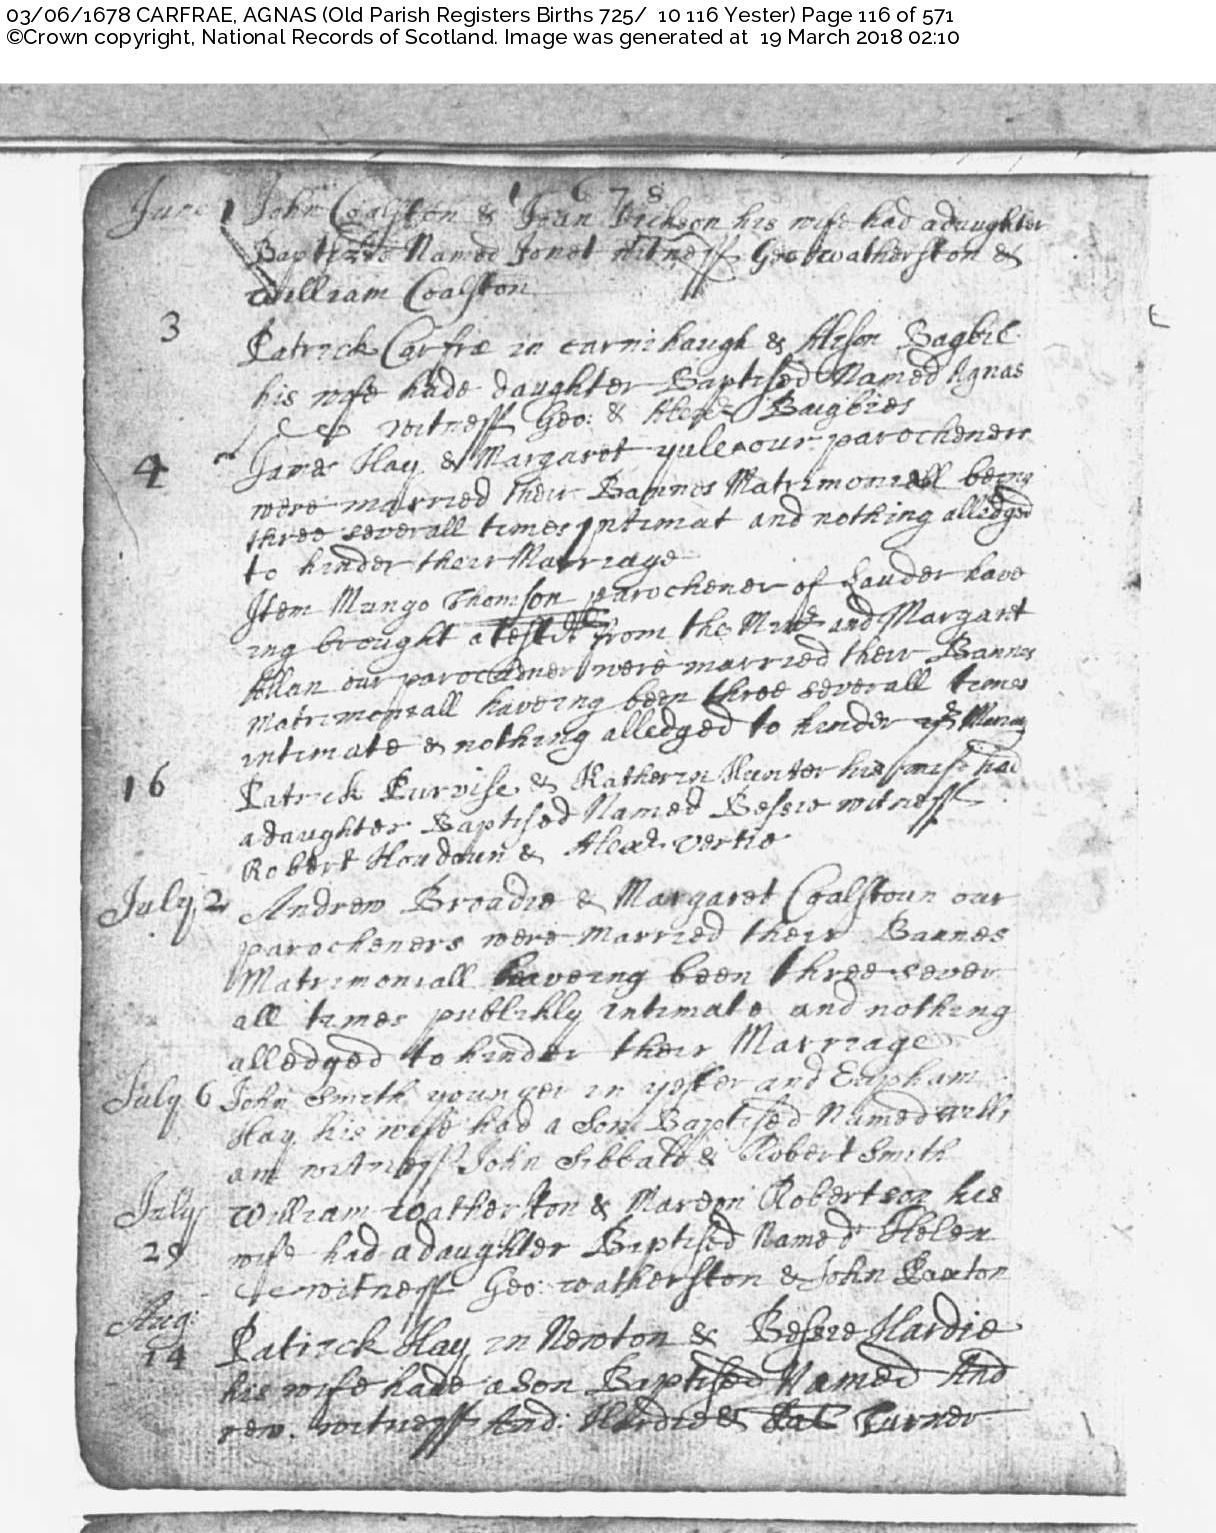 03/06/1678 CARFRAE, AGNAS (Old Parish Registers Births 725/ 10 116 Yester) Page 116 of 571
©Crown copyright, National Records of Scotland. Image was generated at 19 March 2018 02:10
1 6 7 8
June 1 John Coalston & Jean Dickson his wife had a daughter
Baptized Named Jonet witness Geo: watherston &
William Coalston
3 Patrick Carfrae in carnihaugh & Alison Bagbie
his wife hade daughter Baptised Named Agnas
witness Geo: & Alexr Baigbies
4 James Hay & Margaret yule our parocheners
were married their Bannes Matrimoniall being
three severall times intimat and nothing alledged
to hinder their Marriage
Item Mungo Thomson parochener of Lauder have
ing brought a testit from the Minr and Margaret
our parochener were married their Bannes
Matrimoniall haveing been three severall times
intimate & nothing alledged to hinder yr Mariag
16 Patrick Purvise & Katherin Hunter his wife had
a daughter Baptised Named Bessie witness
Robert Houdoun & Alexr vertie
July 2 Andrew Broadie & Margaret Coalstoun our
parocheners were Married their Bannes
Matrimoniall haveing been three sever
all times publikly intimate and nothing
alledged to hinder their Marriage
July 6 John Smith younger in yester and Eupham
Hay his wife had a Son Baptised Named Willi
am witness John Sibbald & Robert Smith
July William watherston & Marion Robertson his
29 wife had a daughter Baptised Named Helen
witness Geo: watherston & John Paxton
Aug: Patrick Hay in Newton & Bessie Hardie
14 his wife hade a Son Baptised Named And
rew. witness And: Hardie & Pat: Turner